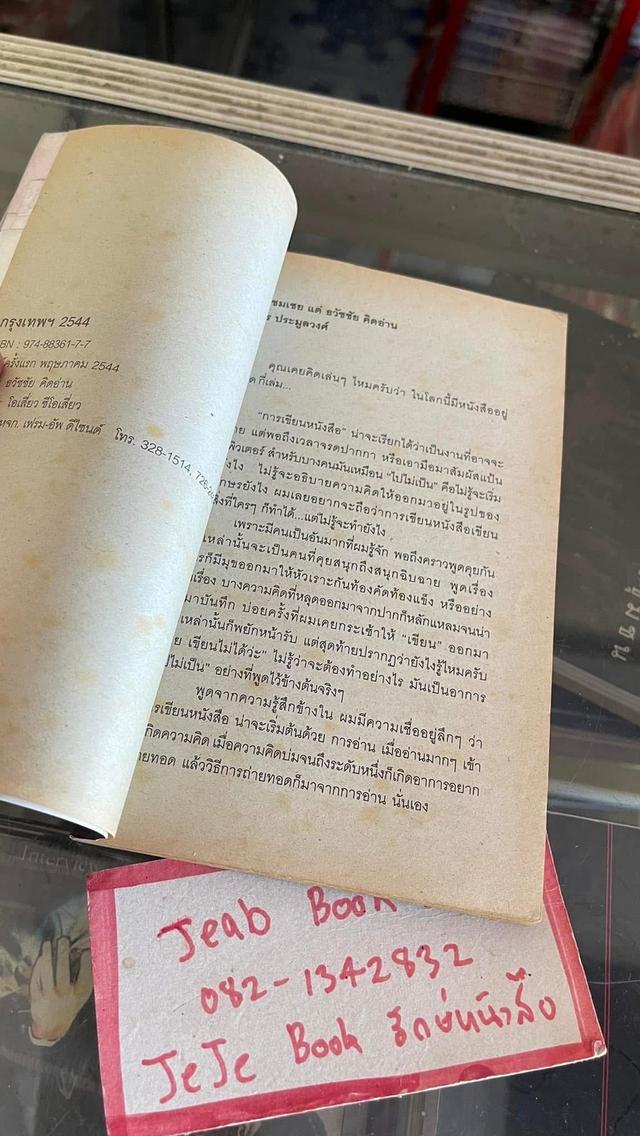 กรุงเทพฯ 2544
BN : 974-88361-7-7
ครั้งแรก พฤษภาคม 2544
ธวัชชัย คิดอ่าน
โอเลี่ยว ซีโอเลี่ยว
หจก. เฟรม-อัพ ดีไซนด์ โทร. 328-1514,
ชมเชย แด่ ธวัชชัย คิดอ่าน
ร ประมูลวงศ์
คุณเคยคิดเล่นๆ ไหมครับว่า ในโลกนี้มีหนังสืออยู่
กี่เล่ม...
"การเขียนหนังสือ" น่าจะเรียกได้ว่าเป็นงานที่อาจจะ
แต่พอถึงเวลาจรดปากกา หรือเอามือมาสัมผัสแป้น
พิวเตอร์ สำหรับบางคนมันเหมือน "ไปไม่เป็น" คือไม่รู้จะเริ่ม
ังไง ไม่รู้จะอธิบายความคิดให้ออกมาอยู่ในรูปของ
กษรยังไง ผมเลยอยากจะถือว่าการเขียนหนังสือเขียน
สิ่งที่ใครๆ ก็ทำได้...แต่ไม่รู้จะทำยังไง
เพราะมีคนเป็นอันมากที่ผมรู้จัก พอถึงคราวพูดคุยกัน
เหล่านั้นจะเป็นคนที่คุยสนุกถึงสนุกฉิบฉาย พูดเรื่อง
รก็มีมุขออกมาให้หัวเราะกันท้องคัดท้องแข็ง หรืออย่าง
เรื่อง บางความคิดที่หลุดออกมาจากปากก็หลักแหลมจนน่า
มาบันทึก บ่อยครั้งที่ผมเคยกระเซ้าให้ "เขียน" ออกมา
เหล่านั้นก็พยักหน้ารับ แต่สุดท้ายปรากฏว่ายังไงรู้ไหมครับ
ย เขียนไม่ได้ว่ะ" ไม่รู้ว่าจะต้องทำอย่างไร มันเป็นอาการ
ปไม่เป็น" อย่างที่พูดไว้ข้างต้นจริงๆ
พูดจากความรู้สึกข้างใน ผมมีความเชื่ออยู่ลึกๆ ว่า
ารเขียนหนังสือ น่าจะเริ่มต้นด้วย การอ่าน เมื่ออ่านมากๆ เข้า
กิดความคิด เมื่อความคิดบ่มจนถึงระดับหนึ่งก็เกิดอาการอยาก
ายทอด แล้ววิธีการถ่ายทอดก็มาจากการอ่าน นั่นเอง
Jeab Book
082-1342832
JeJe Book รักษ์หนังสือ